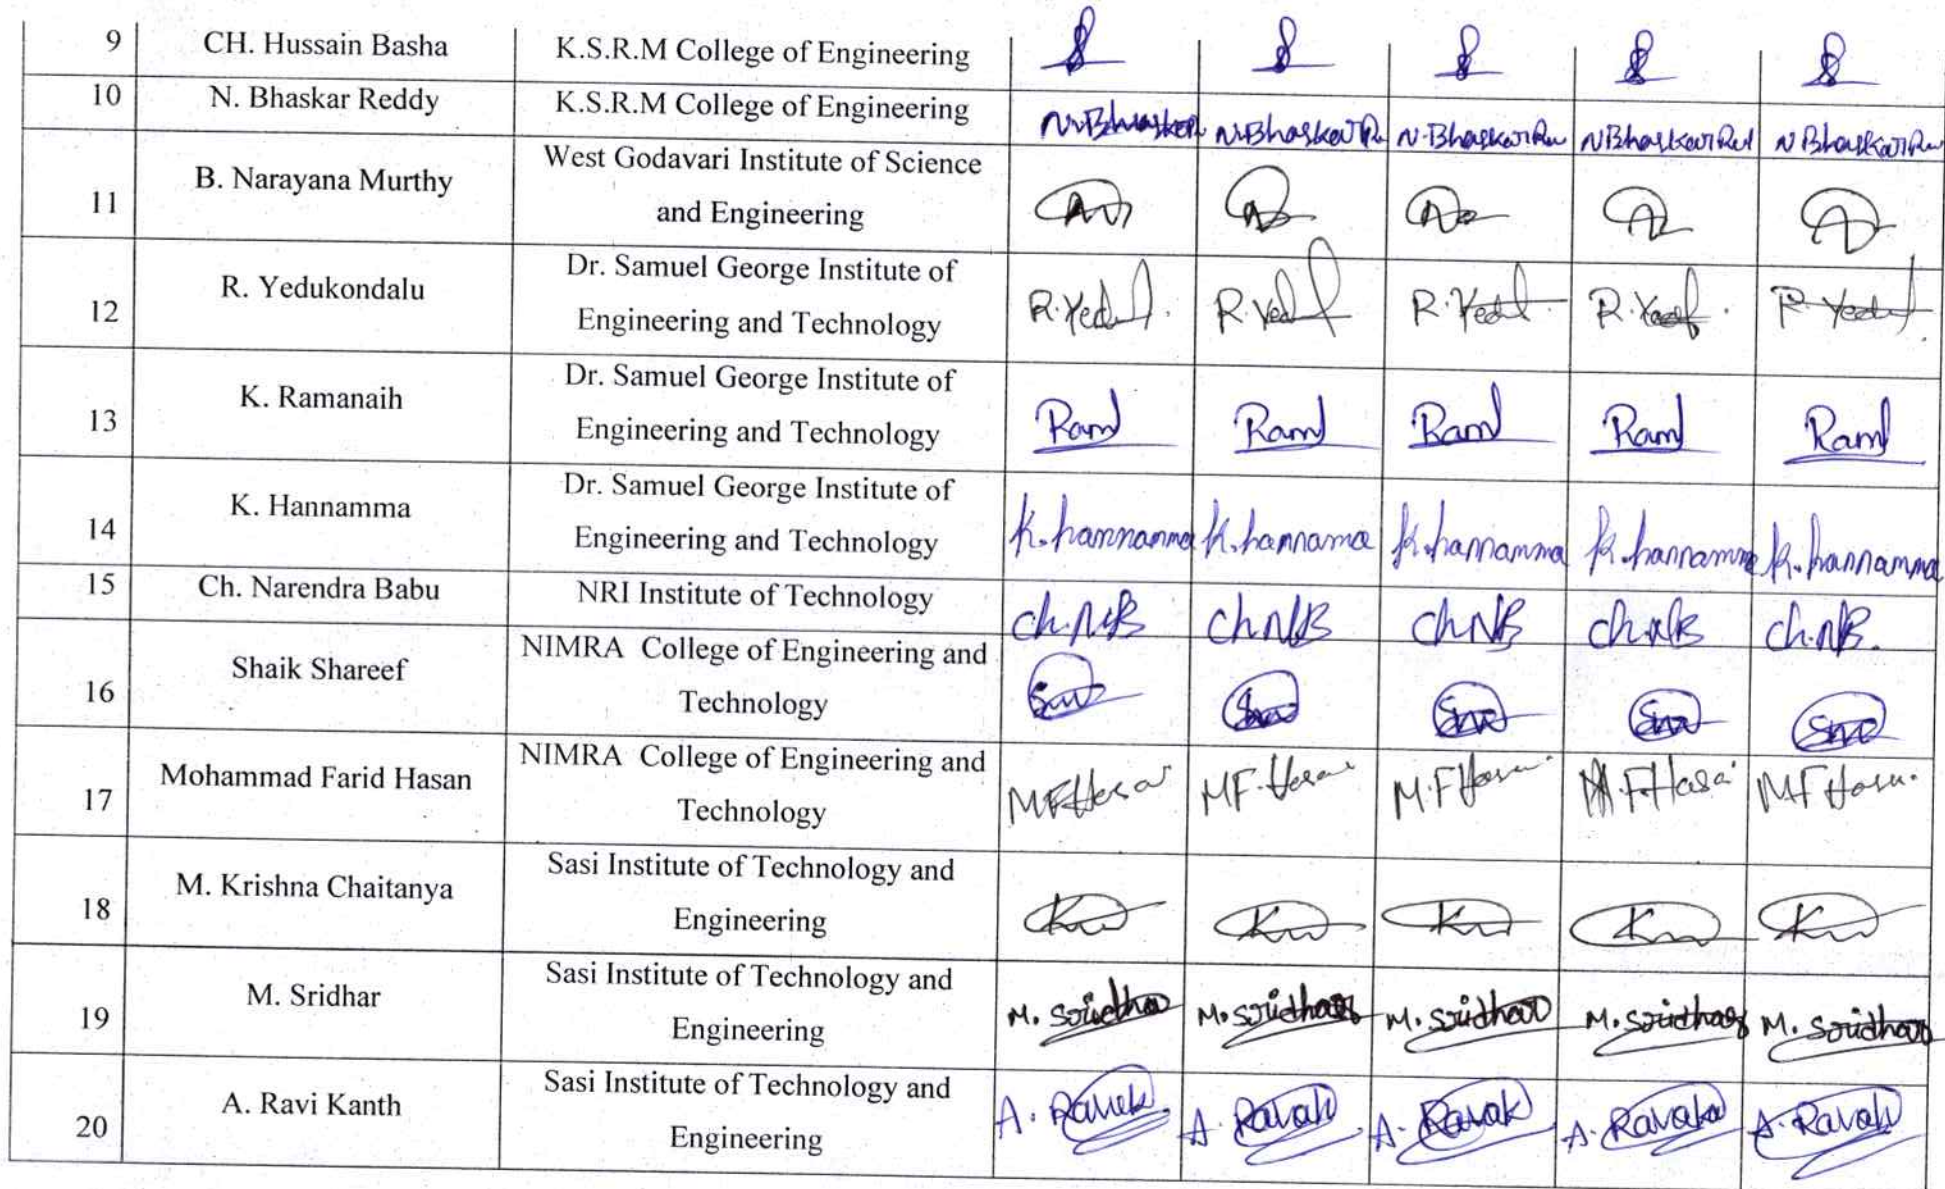 9 CH. Hussain Basha K.S.R.M College of Engineering
10 N. Bhaskar Reddy K.S.R.M College of Engineering
N. Bhaskar N. Bhaskar N. Bhaskar N Bhaskar N Bhaskar
B. Narayana Murthy West Godavari Institute of Science
11 and Engineering
R. Yedukondalu Dr. Samuel George Institute of
12 Engineering and Technology
R. Yed R. Yed R. Yed R. R. Yed
K. Ramanaih Dr. Samuel George Institute of
13 Engineering and Technology
Ram Ram Ram Ram Ram
K. Hannamma Dr. Samuel George Institute of
14 Engineering and Technology
K. hannamma K. hannama K. hannamma K. hannamma K. hannamma
15 Ch. Narendra Babu NRI Institute of Technology
Ch.NB Ch.NB ChNB Ch.NB Ch.NB.
Shaik Shareef NIMRA College of Engineering and
16 Technology
Mohammad Farid Hasan NIMRA College of Engineering and
17 Technology
M. Krishna Chaitanya Sasi Institute of Technology and
18 Engineering
M. Sridhar Sasi Institute of Technology and
19 Engineering
M. Sridhar M. Sridhar M. Sridhar M. Sridhar M. Sridhar
A. Ravi Kanth Sasi Institute of Technology and
20 Engineering
A. A. A. A. A.